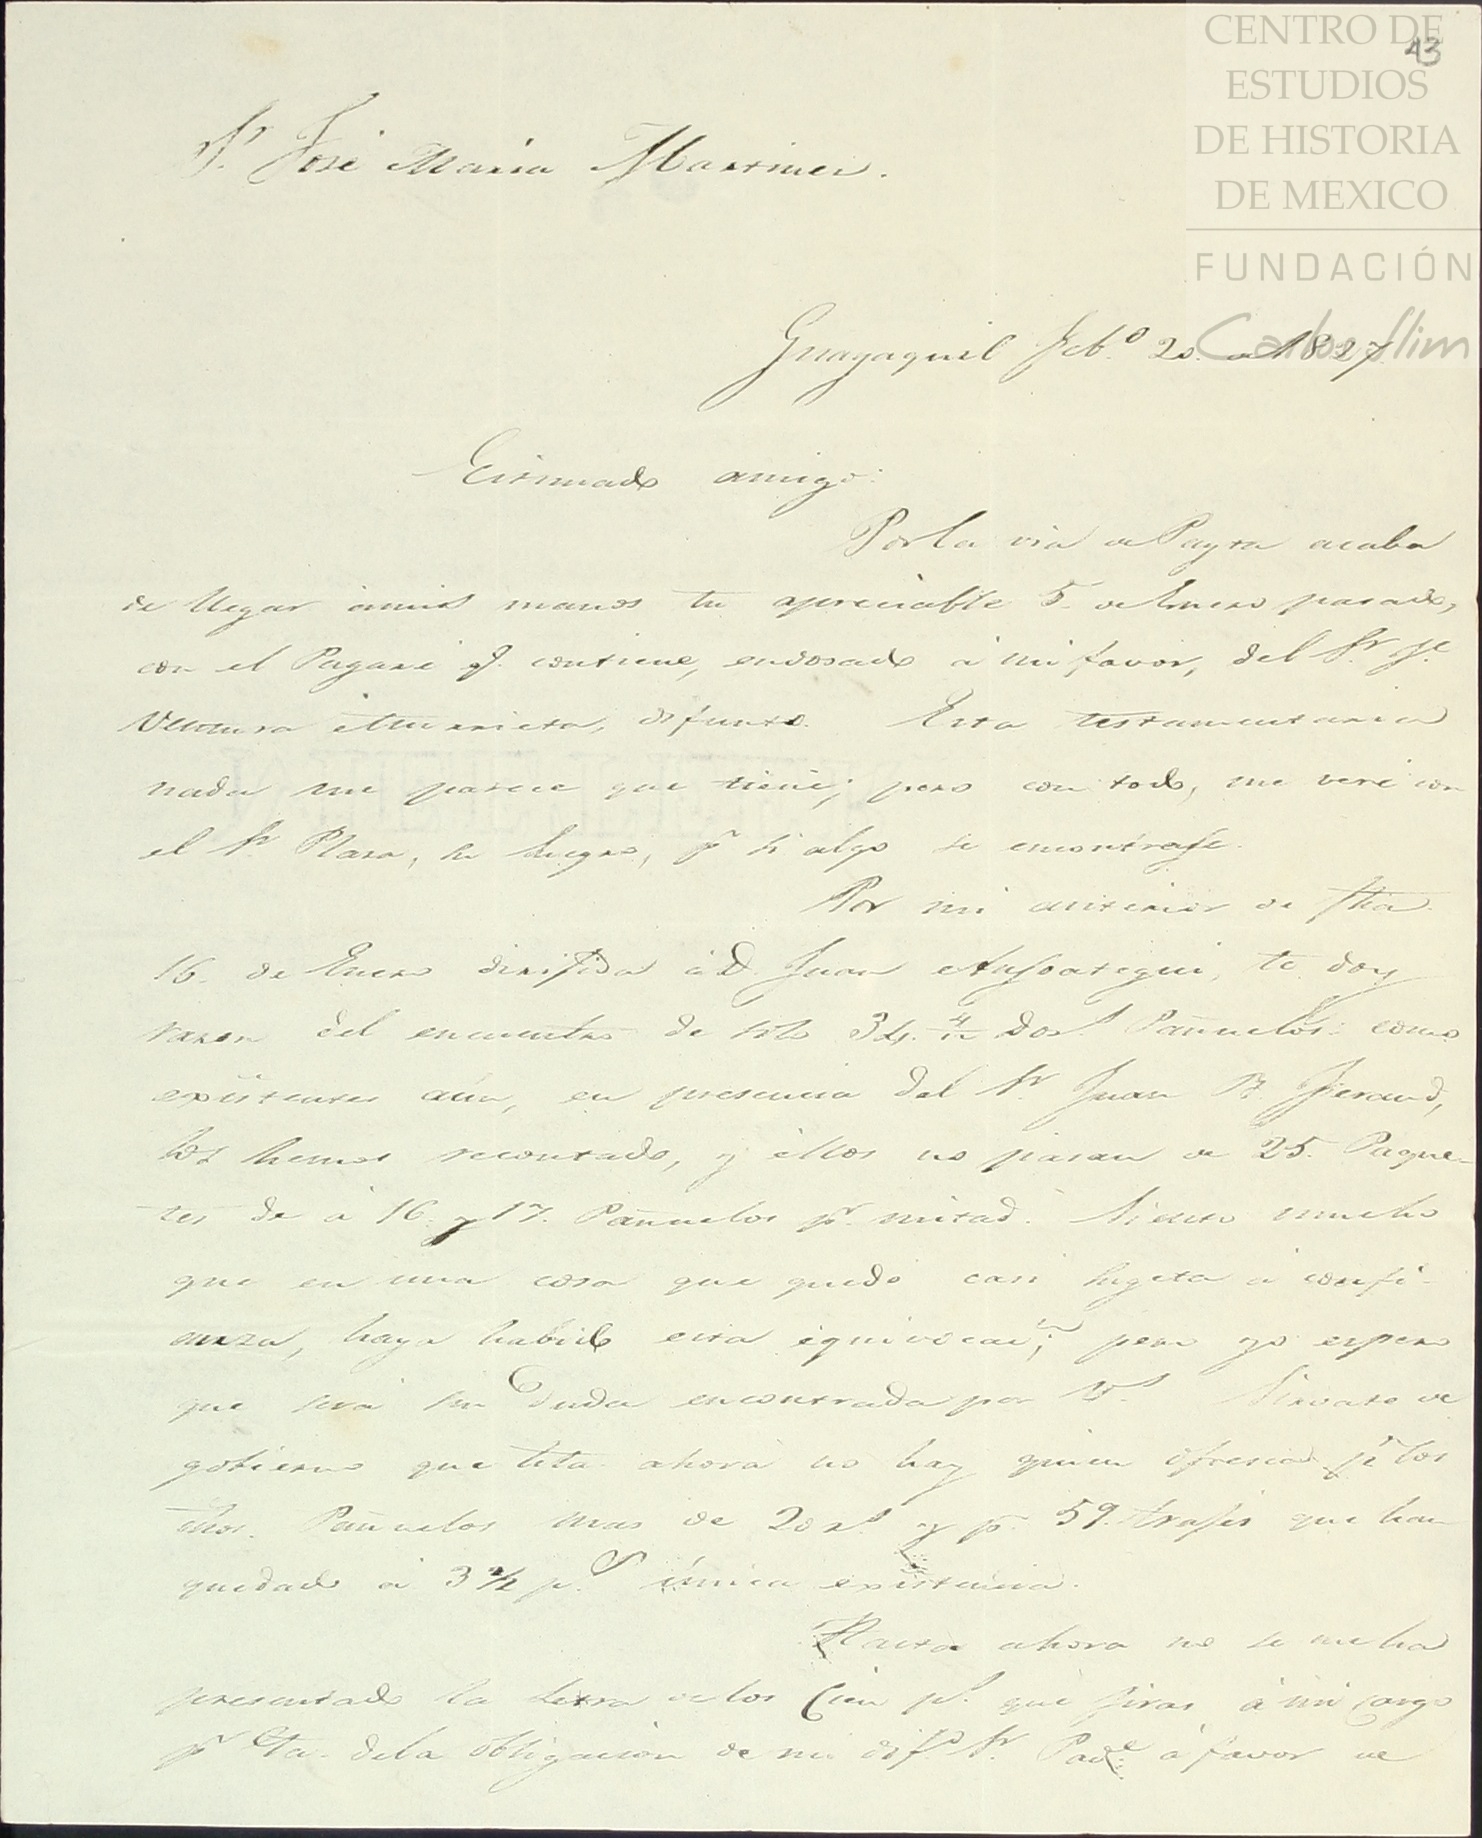 CENTRO DE
ESTUDIOS
DE HISTORIA
DE MEXICO
FUNDACIÓN
Carlos Slim
43
Sr. José Maria Martinez.
Guayaquil Febo. 20. de 1827.
Estimado amigo:
Por la via de Payta acaba
de llegar á mis manos tu apreciable 5. de Enero pasado,
con el Pagaré q. contiene, endosado á mi favor, del Sr. Je.
Ventura Murrieta, difunto. Esta testamentaria
nada me parece que tiene; pero con todo, me veré con
el Sr. Plaza, su Suegro, pr. si algo se encontrase.
Por mi anterior de fha.
16. de Enero dirijida á D. Juan Ansoategui, te doy
razon del encuentro de solo 34. 4/12 Dos. Pañuelos: como
existentes aún, en presencia del Sr. Juan B. Feraud,
los hemos recontado, y éllos no pasan de 25. Paque-
tes de á 16. y 17. Pañuelos pr. mitad. Siento mucho
que en una cosa que quedó casi sugeta á confi-
anza, haya habido esta equivocacn.; pero yo espero
que será sin duda encontrada por Vs. Sirvate de
gobierno que hta. ahora no hay quien ofresca pr. los
dhos. Pañuelos mas de 20 rs. y pr. 59. trajes que han
quedado á 3 1/2 ps. única existencia.
Hasta ahora no se me ha
presentado la Letra de los Cien ps. que jiras á mi cargo
pr. Cta. de la obligacion de mi difo. Sr. Pade. á favor de